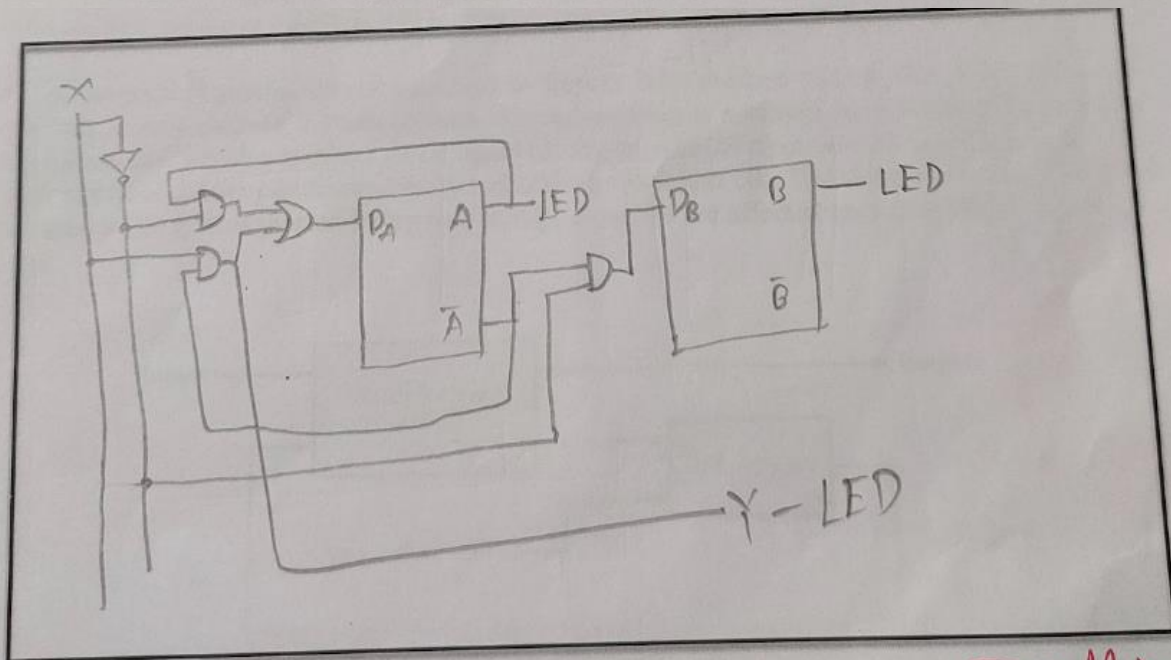 X
D_A A LED
Ā
D_B B LED
B̄
Y - LED